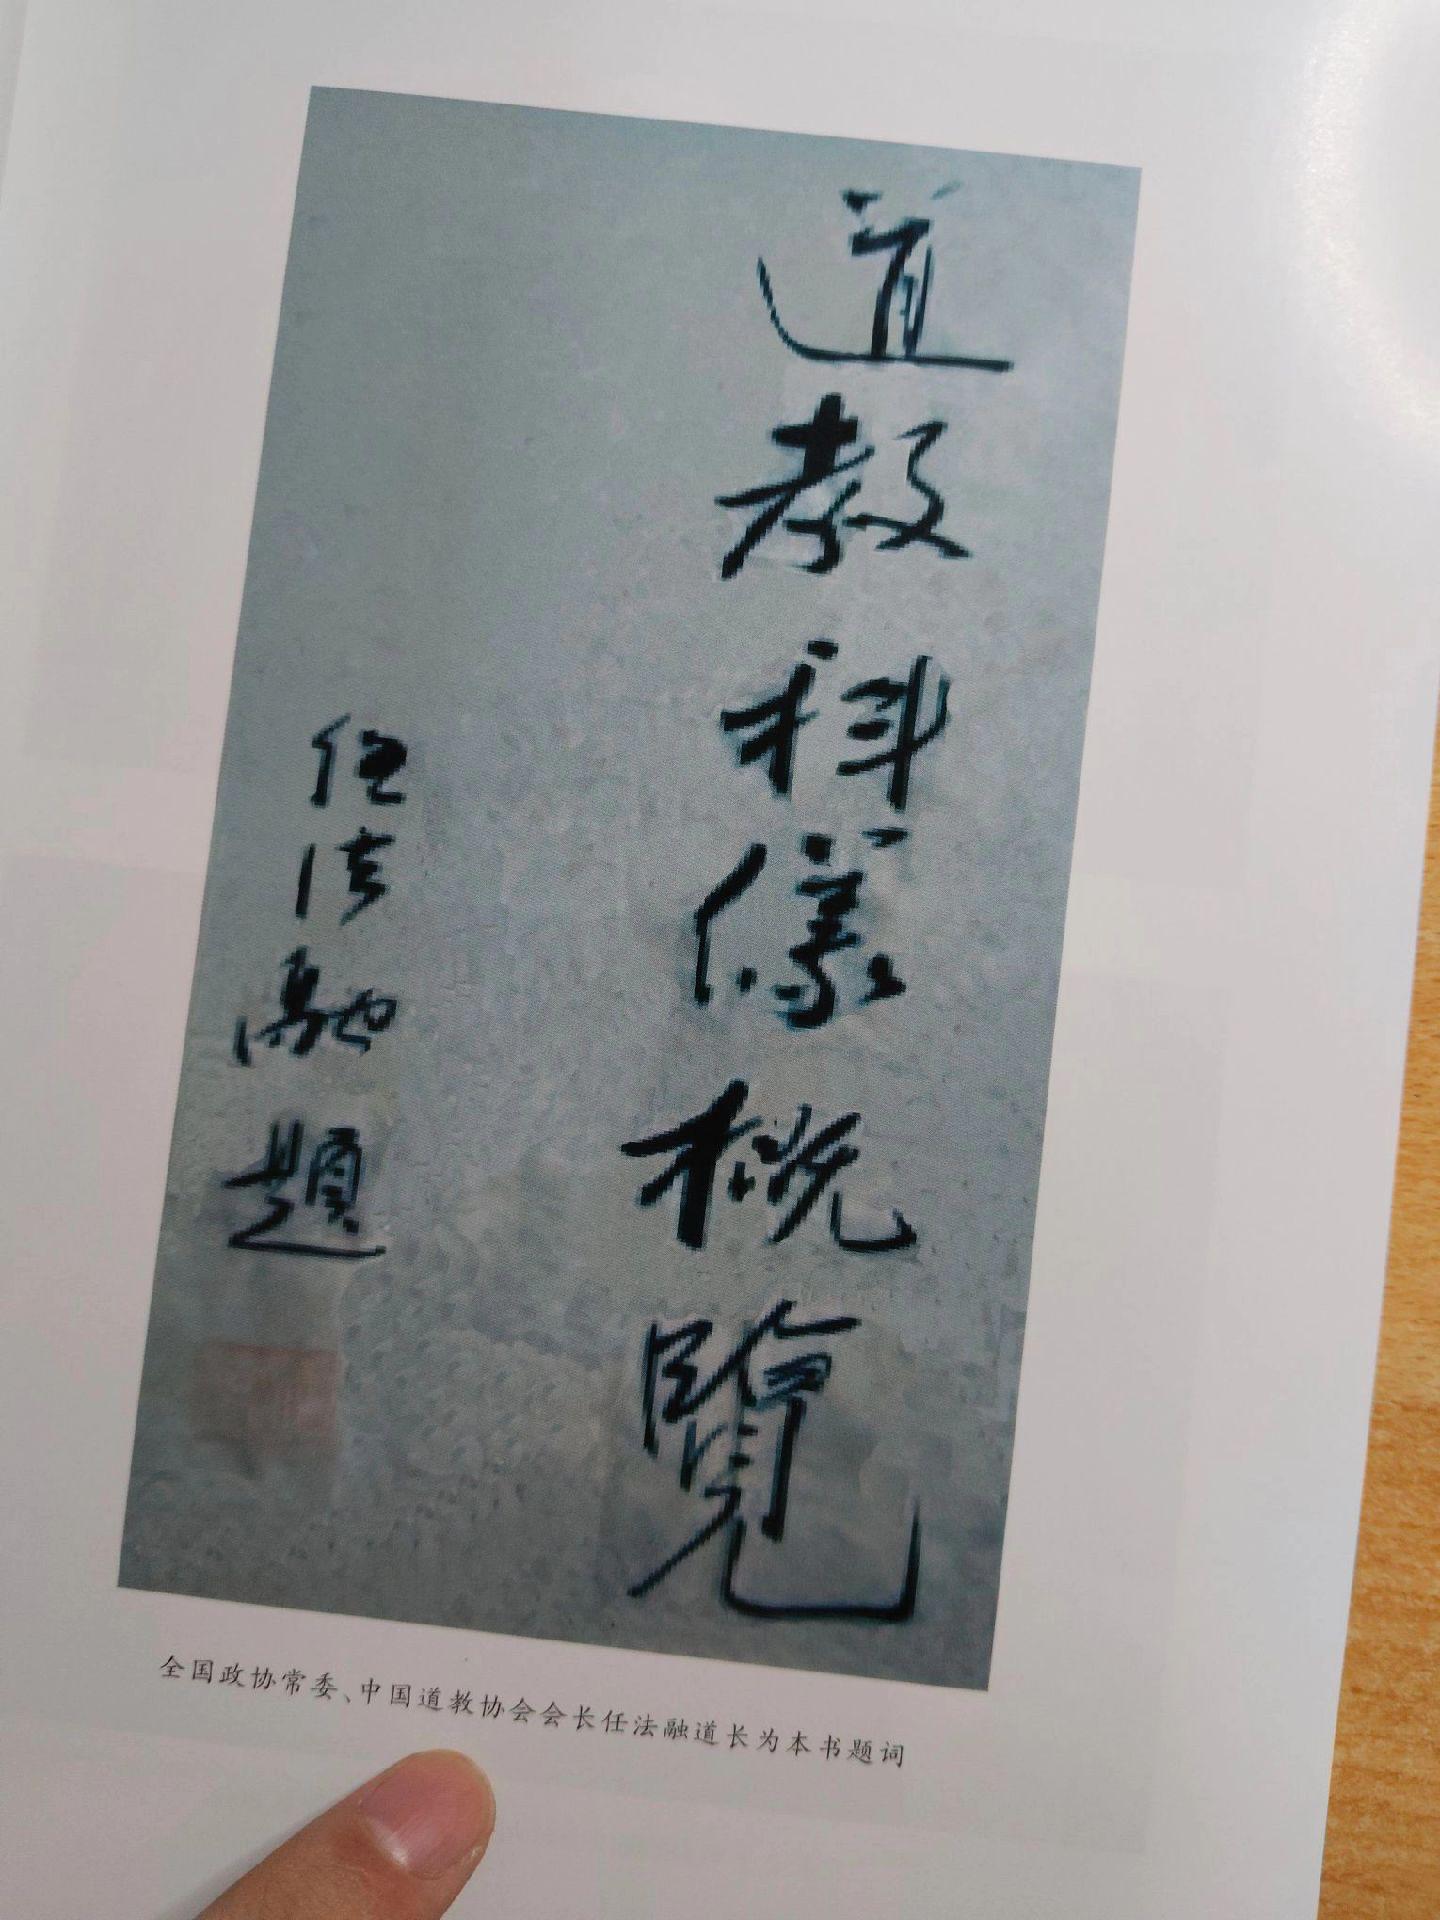 道教科儀概覽
任法融題
全国政协常委、中国道教协会会长任法融道长为本书题词